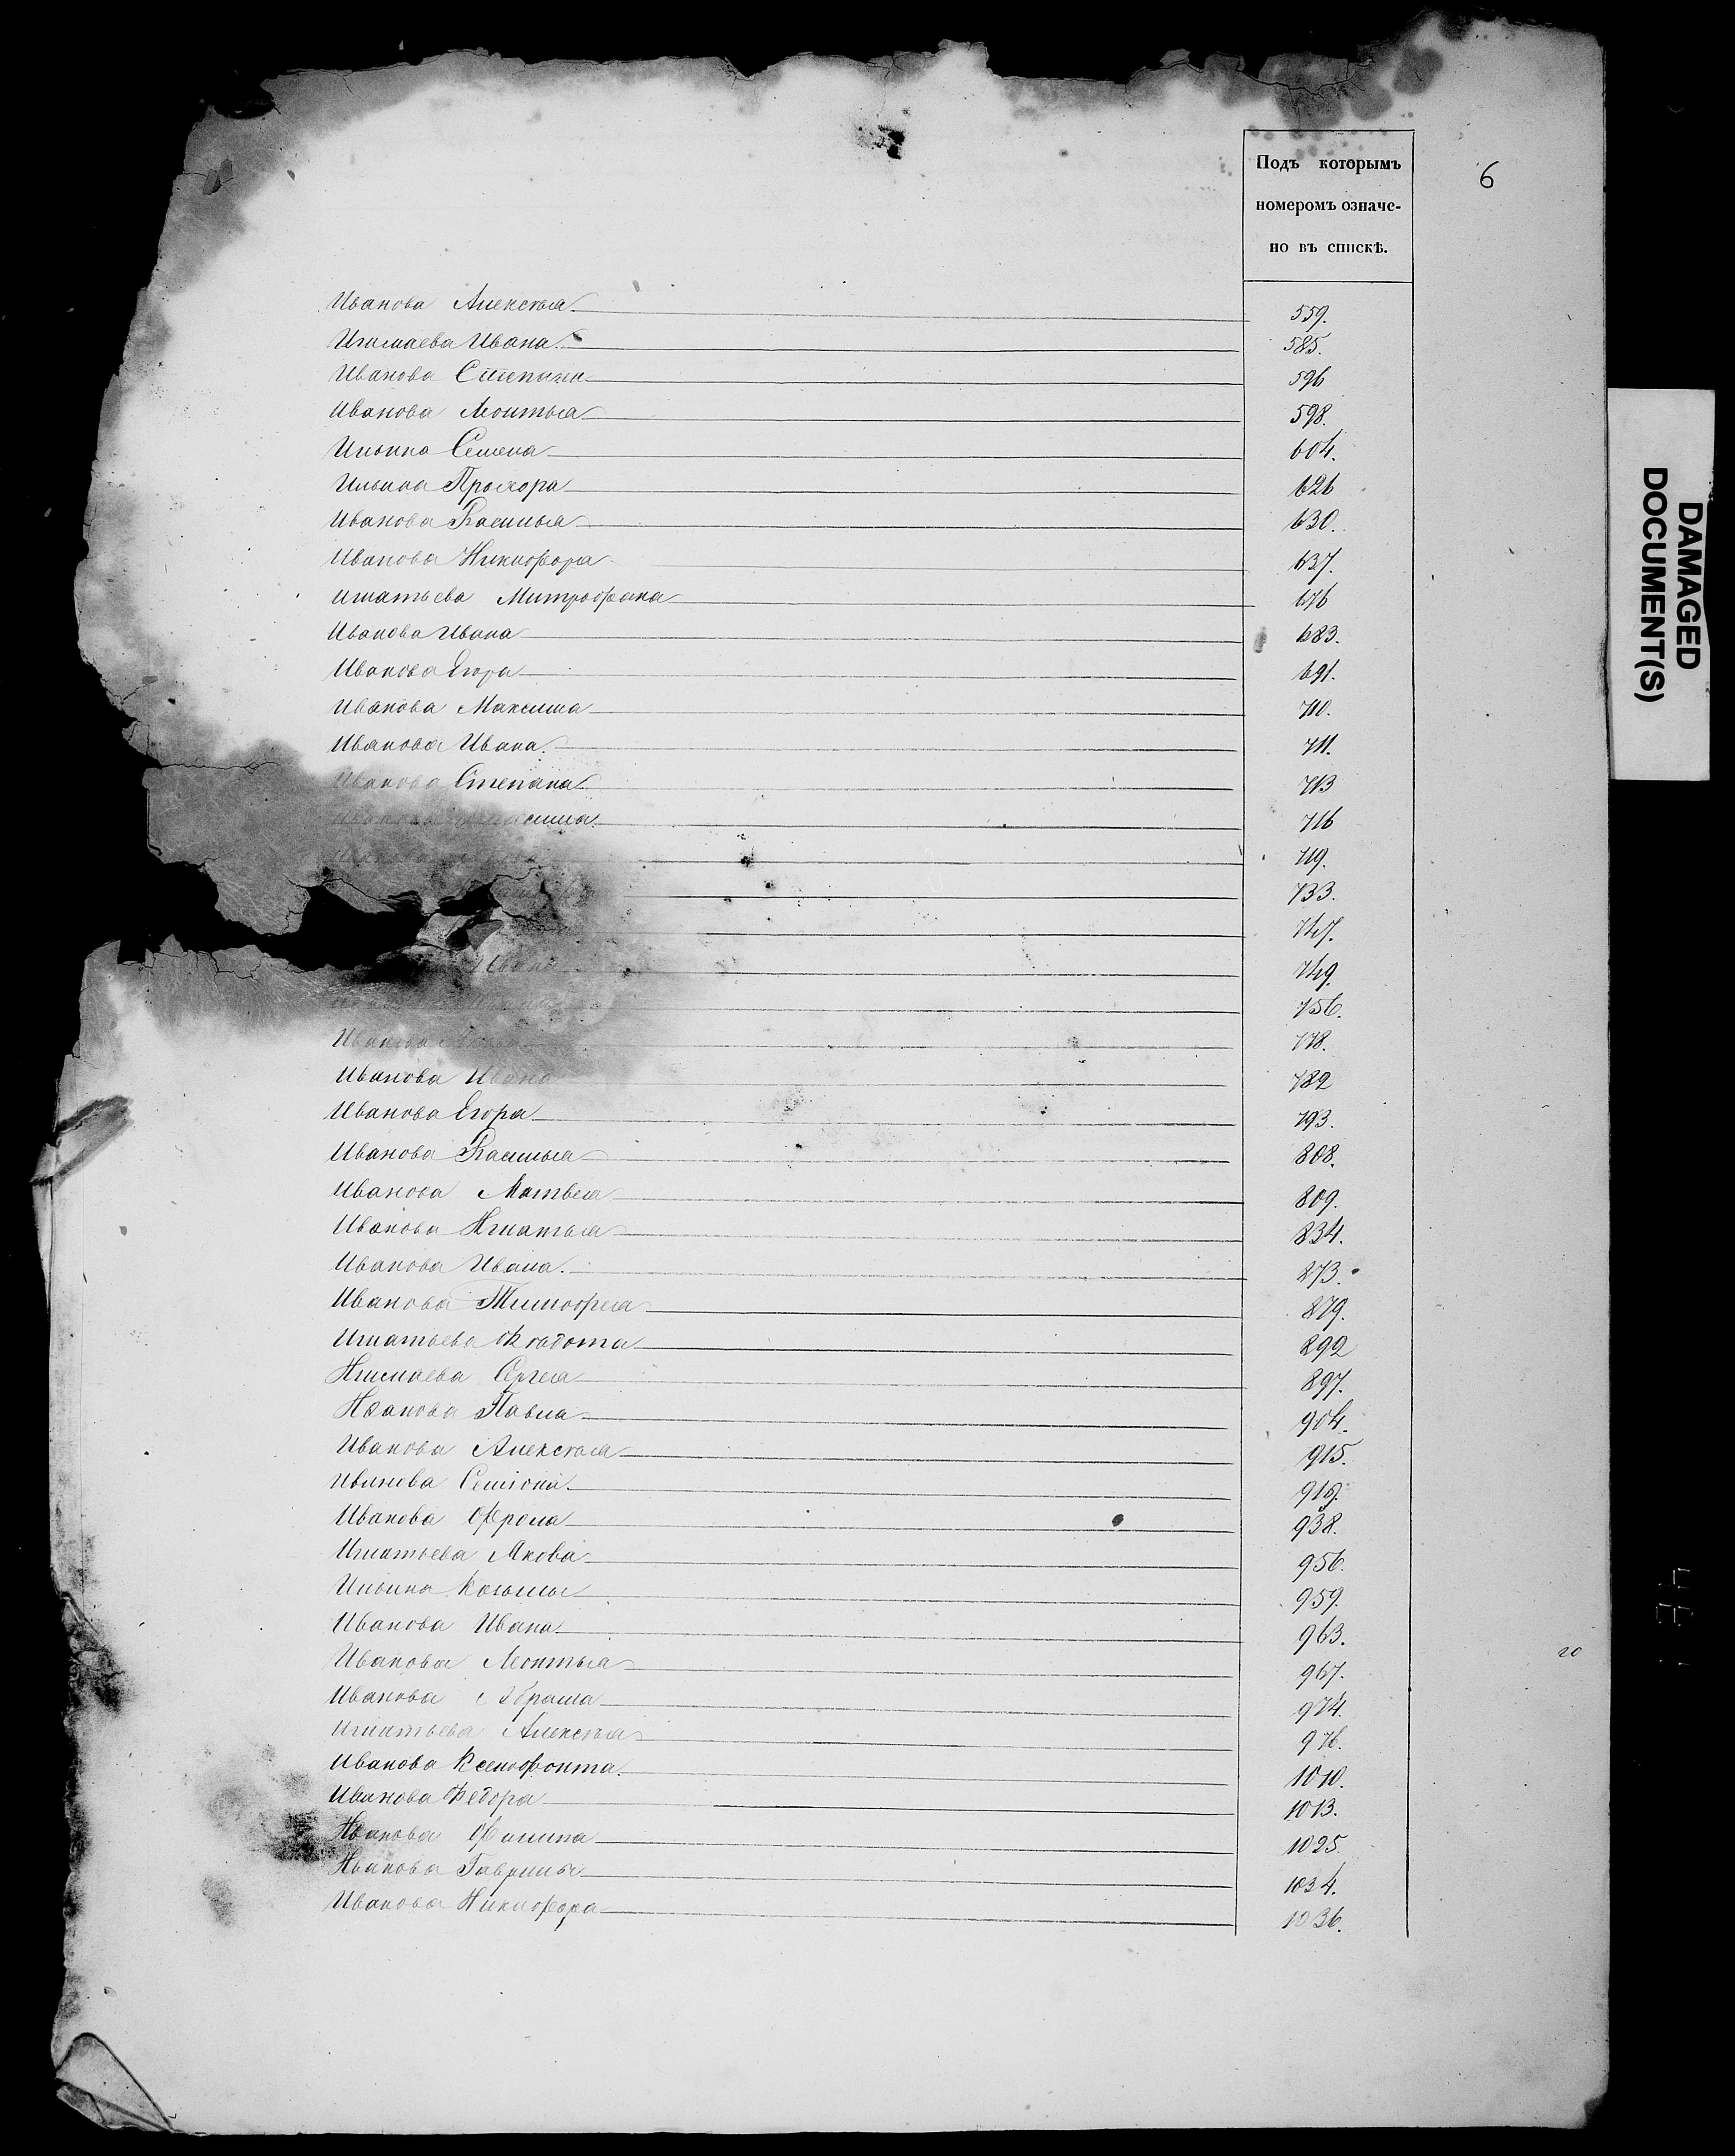 6
Подъ которымъ
номеромъ означе-
но въ спискѣ.
Иванова Алексѣя 559.
Игнаева Ивана. 585.
Иванова Степана 596
Иванова Леонтья 598.
Ильина Семена 604.
Ильина Прохора 626
Иванова Василья 630.
Иванова Никифора 637.
Игнатьева Митрофана 676
Иванова Ивана 683.
Иванова Егора 691.
Иванова Максима 710.
Иванова Ивана. 711.
Иванова Степана 713
Иванова 716
719.
733.
747.
Ивана 749.
756.
Иванова 778.
Иванова Ивана 782
Иванова Егора 793.
Иванова Василья 808.
Иванова Матвея 809.
Иванова Игнатья 834.
Иванова Ивана. 873.
Иванова Тимофея 879.
Игнатьева Ѳедота 892
Сергея 897.
Иванова Павла 904.
Иванова Алексѣя 915.
Иванова Семіона. 919.
Иванова Фрола 938.
Игнатьева Якова 956.
Ильина Козьмы 959.
Иванова Ивана. 963.
Иванова Леонтья 967.
Иванова Абрама 974.
Игнатьева Алексѣя 976.
Иванова Ксенофонта. 1010.
Иванова Ѳедора 1013.
Иванова Филипа 1025.
Иванова Гаврилы 1034.
Иванова Никифора 1036.
DAMAGED
DOCUMENT(S)